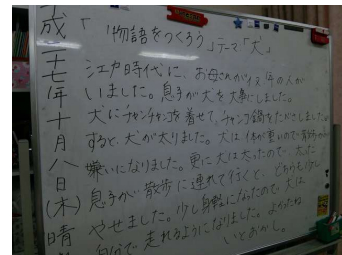 成二十七年十月八日(木)晴
「物語をつくろう」テーマ「犬」
江戸時代に、お母さんがイヌ年の人が
いました。息子が犬を大事にしました。
犬にチャンチャンコを着せて、チャンコ鍋をたださしました
すると、犬が太りました。犬は体が重いので
嫌いになりました。更に犬は太ったので、太った
息子が散歩に連れて行くと、どちらも少し
やせました。少し身軽になったので、犬は
自分で走れるようになりました。よかったね
いとおかし。